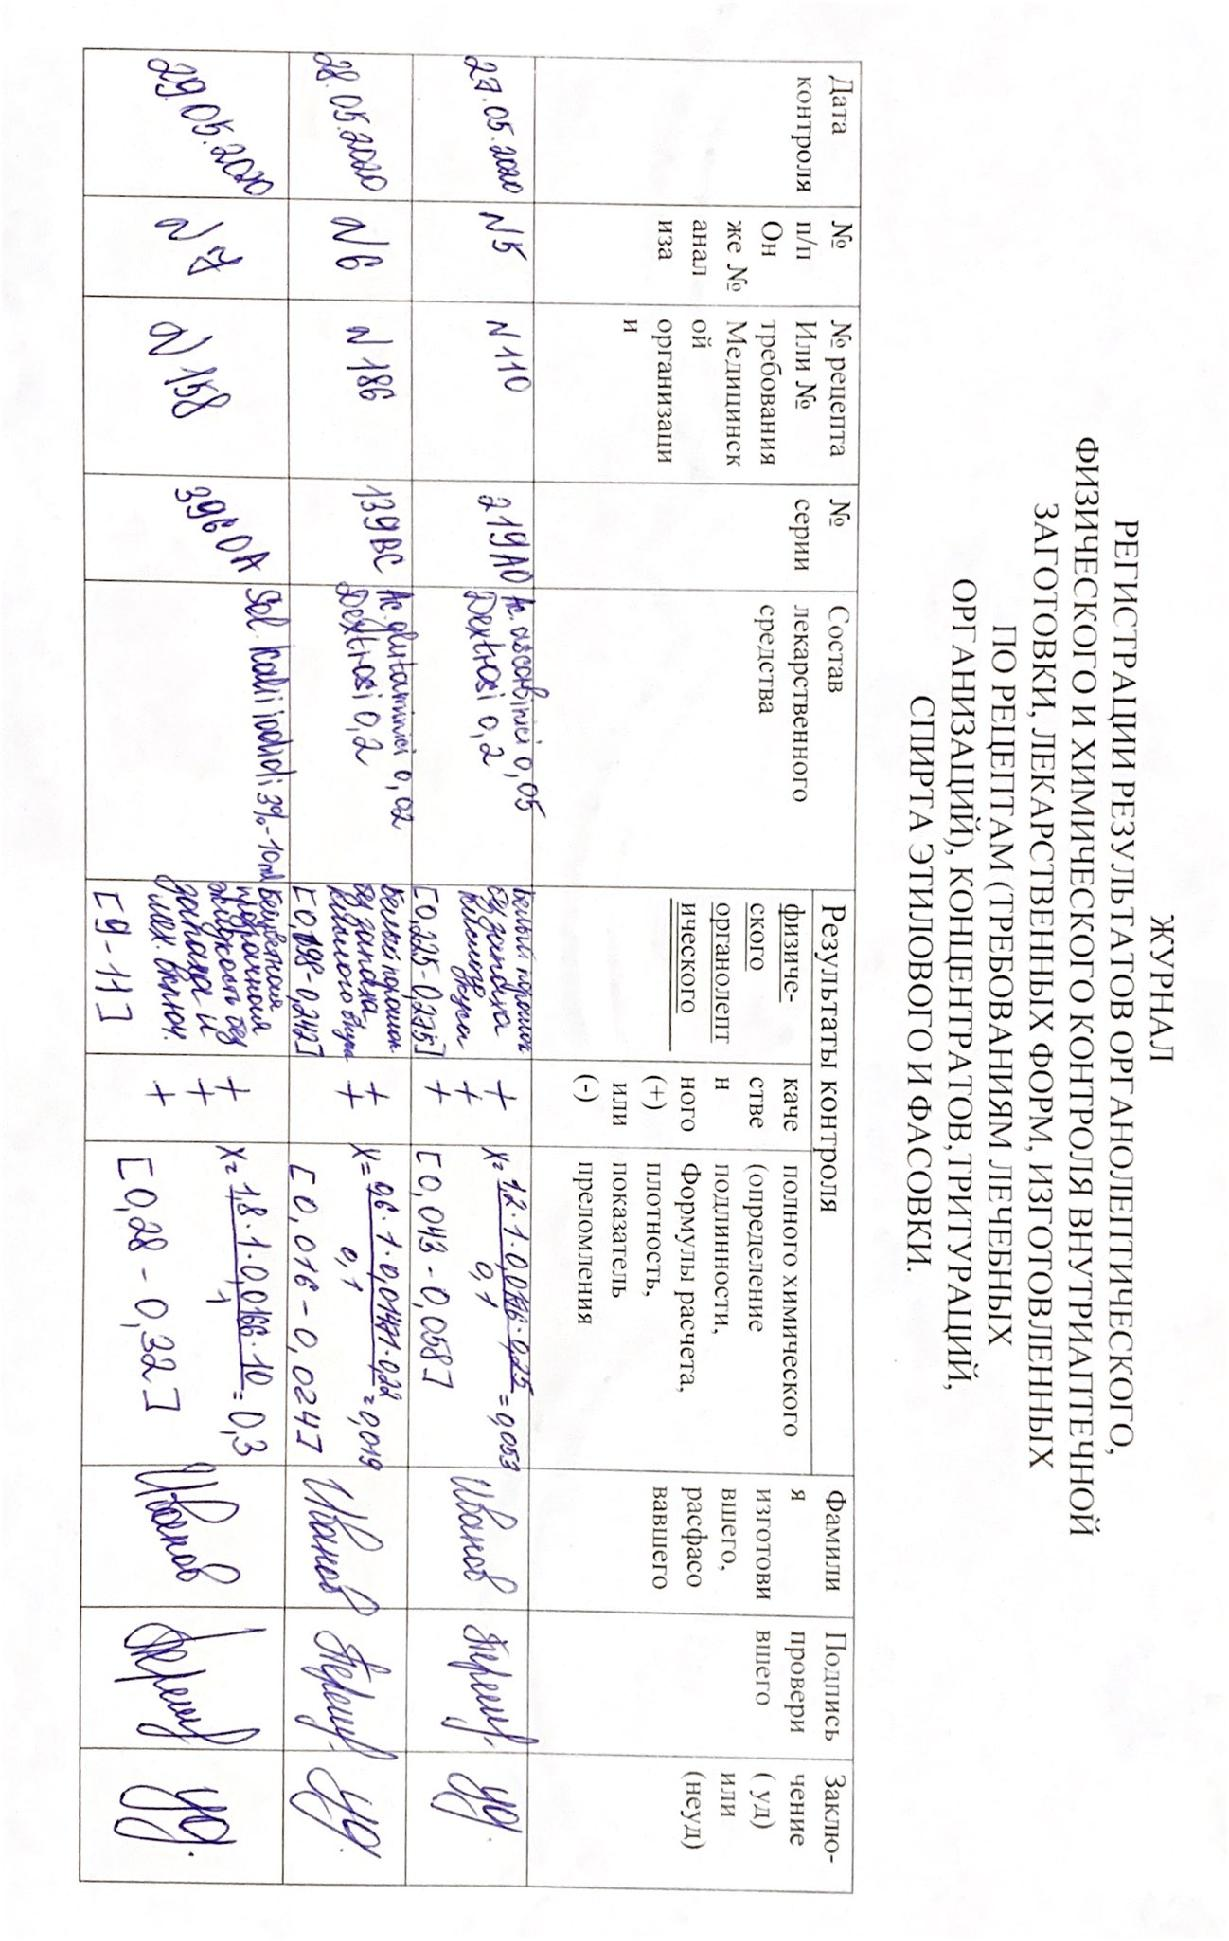 ЖУРНАЛ
РЕГИСТРАЦИИ РЕЗУЛЬТАТОВ ОРГАНОЛЕПТИЧЕСКОГО,
ФИЗИЧЕСКОГО И ХИМИЧЕСКОГО КОНТРОЛЯ ВНУТРИАПТЕЧНОЙ
ЗАГОТОВКИ, ЛЕКАРСТВЕННЫХ ФОРМ, ИЗГОТОВЛЕННЫХ
ПО РЕЦЕПТАМ (ТРЕБОВАНИЯМ ЛЕЧЕБНЫХ
ОРГАНИЗАЦИЙ), КОНЦЕНТРАТОВ,ТРИТУРАЦИЙ,
СПИРТА ЭТИЛОВОГО И ФАСОВКИ.
Дата
контроля
№
п/п
Он
же №
анал
иза
№ рецепта
Или №
требования
Медицинск
ой
организаци
и
№
серии
Состав
лекарственного
средства
Результаты контроля
физиче-
ского
органолепт
ического
каче
стве
н
ного
(+)
или
(-)
полного химического
(определение
подлинности,
Формулы расчета,
плотность,
показатель
преломления
Фамили
я
изготови
вшего,
расфасо
вавшего
Подпись
провери
вшего
Заклю-
чение
( уд)
или
(неуд)
27.05.2020
N5
N110
219AD
Ac. ascorbinici 0,05
Dextrosi 0,2
Белый порошок
без запаха
кислого вкуса
[0,225-0,275]
+
+
+
X= 1,2·1·0,0176·0,25 = 0,053
0,1
[0,043-0,058]
Иванов
уд.
28.05.2020
N6
N186
139BC
Ac. glutaminici 0,02
Dextrosi 0,2
Белый порошок
без запаха,
кислого вкуса
[0,198-0,242]
+
+
X= 0,6·1·0,01471·0,22 = 0,019
0,1
[0,016-0,024]
Иванов
уд.
29.05.2020
N7
N158
396DA
Sol. Kalii iodidi 3%-10ml
Бесцветная
прозрачная
жидкость без
запаха и
мех. включ.
[9-11]
+
+
+
X= 1,8·1·0,0166·10 = 0,3
1
[0,28-0,32]
Иванов
уд.